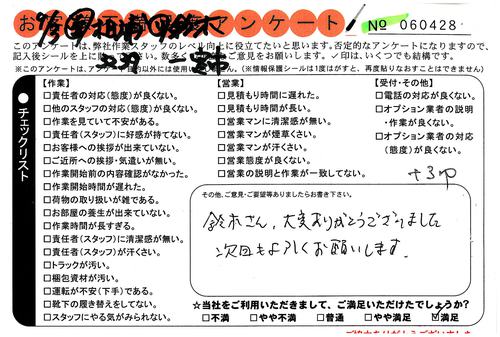 アンケート
№ 060428
このアンケートは、弊社作業スタッフのレベル向上に役立てたいと思います。否定的なアンケートになりますので、
※このアンケートは、
(※情報保護シールは1度はがすと、再度貼りなおすことはできません)
チェックリスト
【作業】
□責任者の対応(態度)が良くない。
□他のスタッフの対応(態度)が良くない。
□作業を見ていて不安がある。
□責任者(スタッフ)に好感が持てない。
□お客様への挨拶が出来ていない。
□ご近所への挨拶・気遣いが無い。
□作業開始前の内容確認がなかった。
□作業開始時間が遅れた。
□荷物の取り扱いが雑である。
□お部屋の養生が出来ていない。
□作業時間が長すぎる。
□責任者(スタッフ)に清潔感が無い。
□責任者(スタッフ)が汗くさい。
□トラックが汚い。
□梱包資材が汚い。
□運転が不安(下手)である。
□靴下の履き替えをしてない。
□スタッフにやる気がみられない。
【営業】
□見積もり時間に遅れた。
□見積もり時間が長い。
□営業マンに清潔感が無い。
□営業マンが煙草くさい。
□営業マンが汗くさい。
□営業態度が良くない。
□営業の説明と作業が一致してない。
【受付・その他】
□電話の対応が良くない。
□オプション業者の説明
・作業が良くない。
□オプション業者の対応
(態度)が良くない。
その他、ご意見・ご要望等ありましたらお書き下さい。
鈴木さん、大変ありがとうございました
次回もよろしくお願いします。
☆当社をご利用いただきまして、ご満足いただけたでしょうか?
□不満 □やや不満 □普通 □やや満足 ☑満足